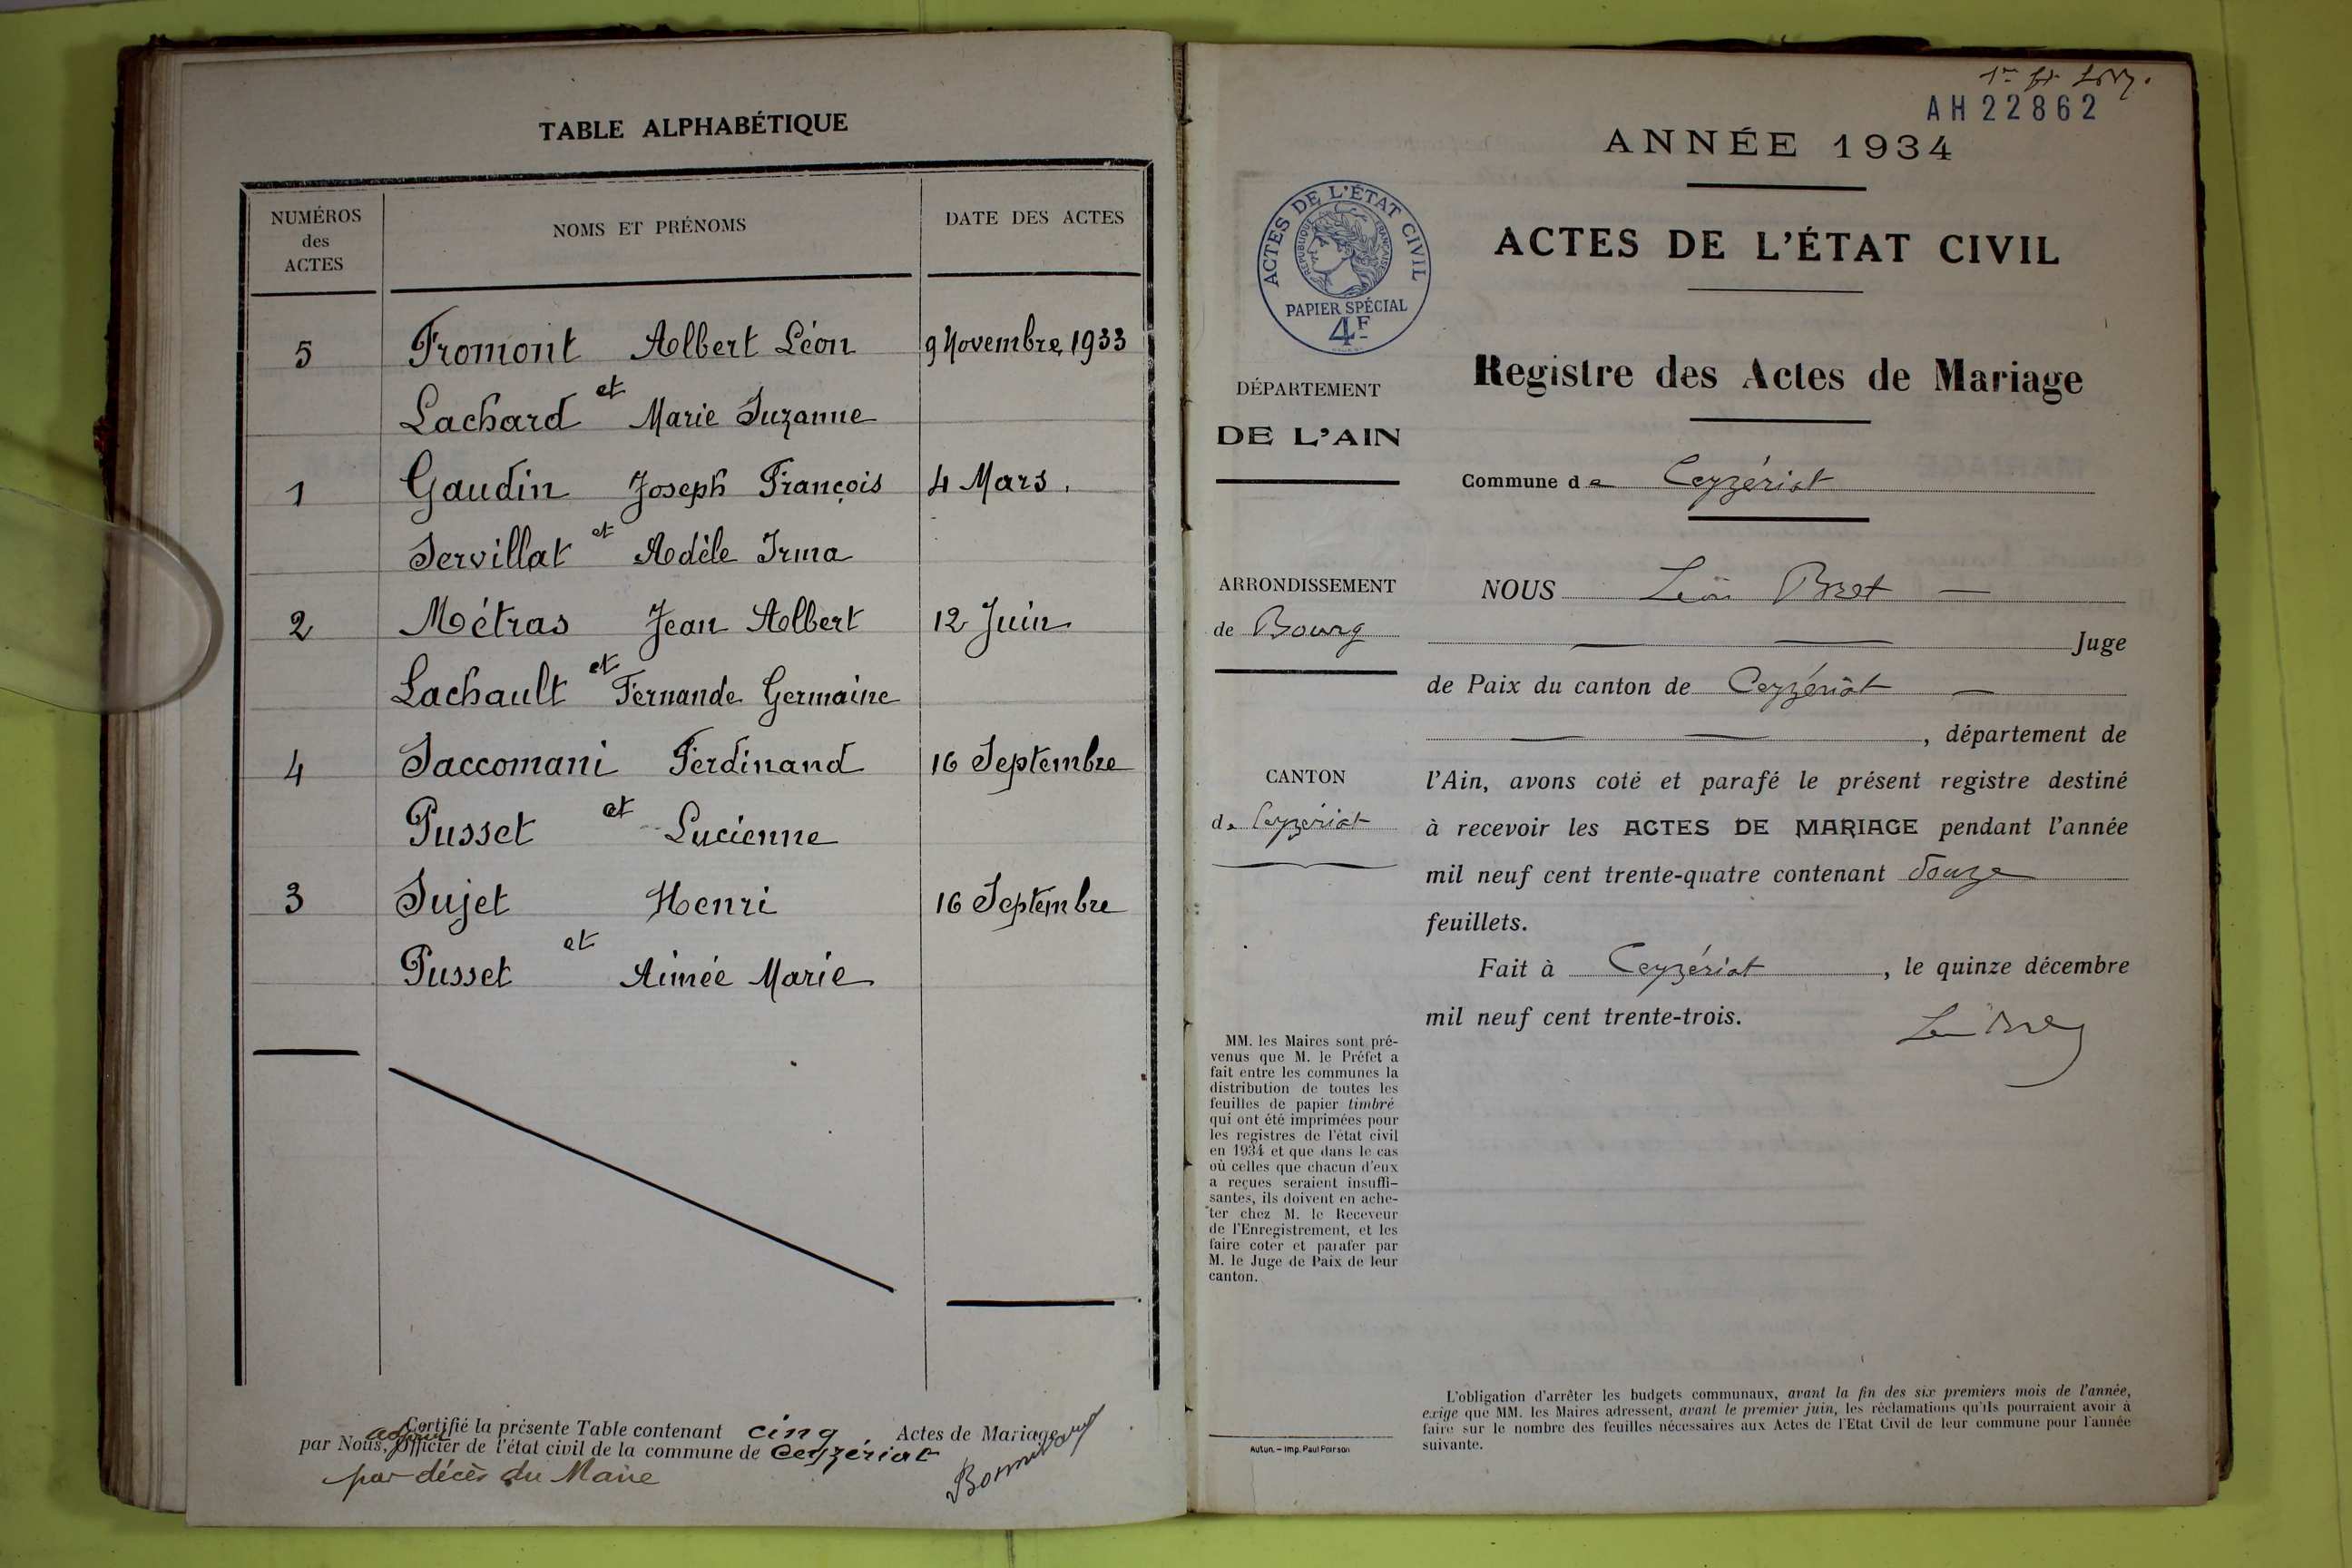 TABLE ALPHABÉTIQUE
NUMÉROS
des
ACTES
NOMS ET PRÉNOMS
DATE DES ACTES
5 Fromont Albert Léon 9 Novembre 1933
et
Lachard Marie Suzanne
1 Gaudin Joseph François 4 Mars.
et
Servillat Adèle Irma
2 Métras Jean Albert 12 Juin
et
Lachault Fernande Germaine
4 Saccomani Ferdinand 16 Septembre
et
Pusset Lucienne
3 Sujet Henri 16 Septembre
et
Pusset Aimée Marie
Certifié la présente Table contenant cinq Actes de Mariage
adjoint
par Nous, Officier de l'état civil de la commune de Ceyzériat
par décès du Maire
AH22862
ANNÉE 1934
ACTES DE L'ÉTAT CIVIL
RÉPUBLIQUE FRANÇAISE
PAPIER SPÉCIAL
4F
ACTES DE L'ÉTAT CIVIL
Registre des Actes de Mariage
DÉPARTEMENT
DE L'AIN
Commune de Ceyzériat
ARRONDISSEMENT
de Bourg
CANTON
de Ceyzériat
NOUS Léon Bret
Juge
de Paix du canton de Ceyzériat
, département de
l'Ain, avons coté et parafé le présent registre destiné
à recevoir les ACTES DE MARIAGE pendant l'année
mil neuf cent trente-quatre contenant douze
feuillets.
Fait à Ceyzériat, le quinze décembre
mil neuf cent trente-trois.
MM. les Maires sont pré-
venus que M. le Préfet a
fait entre les communes la
distribution de toutes les
feuilles de papier timbré
qui ont été imprimées pour
les registres de l'état civil
en 1934 et que dans le cas
où celles que chacun d'eux
a reçues seraient insuffi-
santes, ils doivent en ache-
ter chez M. le Receveur
de l'Enregistrement, et les
faire coter et parafer par
M. le Juge de Paix de leur
canton.
Autun. – Imp. Paul Poirson
L'obligation d'arrêter les budgets communaux, avant la fin des six premiers mois de l'année,
exige que MM. les Maires adressent, avant le premier juin, les réclamations qu'ils pourraient avoir à
faire sur le nombre des feuilles nécessaires aux Actes de l'Etat Civil de leur commune pour l'année
suivante.